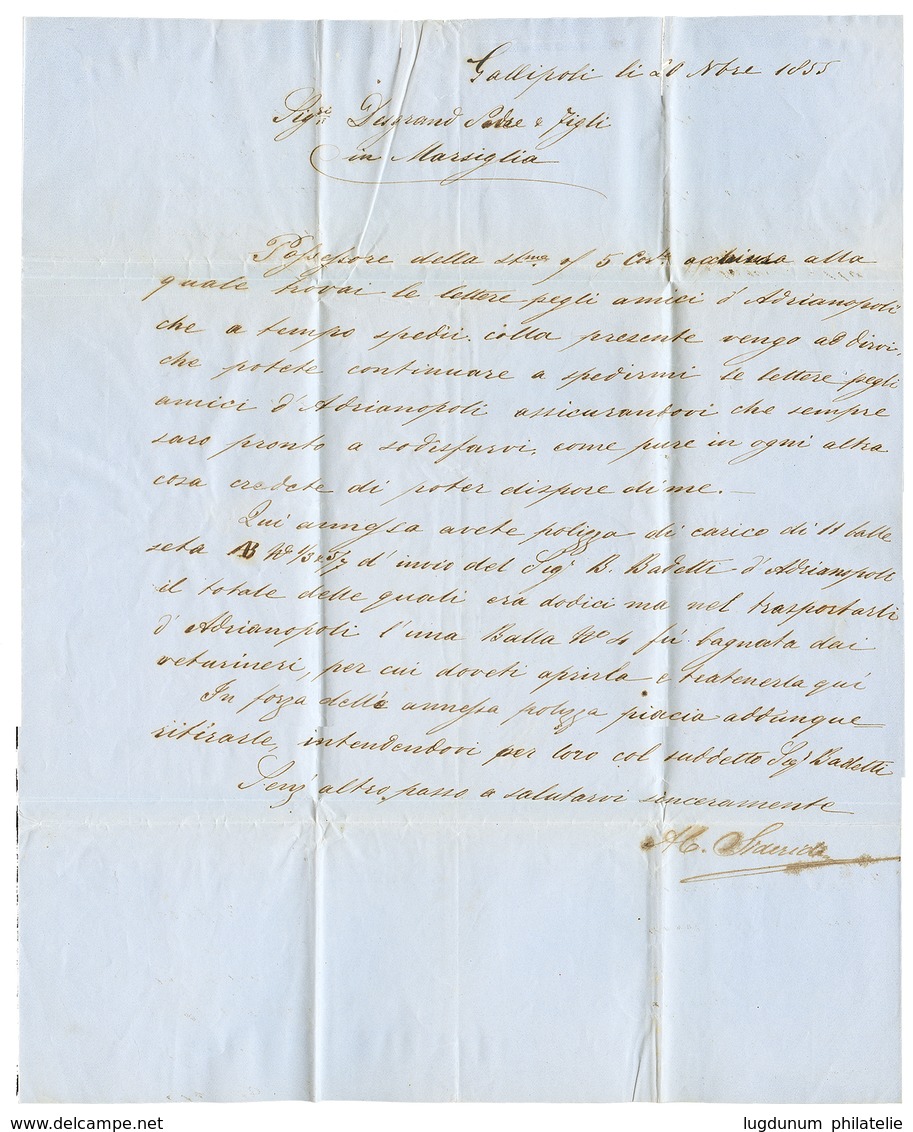 Gallipoli li 20 Nbre 1855
Sigri Desgrand Padre & Figli
in Marsiglia
Possessore della stma of 5 Corte acchiusa alla
quale trovai le lettere pegli amici d'Adrianopoli
che a tempo spedii. colla presente vengo ad dirvi,
che potete continuare a spedirmi le lettere pegli
amici d'Adrianopoli assicurandovi che sempre
saro pronto a sodisfarvi, come pure in ogni altra
cosa credete di poter dispore di me. —
Qui annessa avete polizza di carico di 11 balle
seta AB No 1/3 & 5/ d'invio del Sigr B. Badetti d'Adrianopoli
il totale delle quali era dodici ma nel trasportarli
d'Adrianopoli l'una Balla No 4 fu bagnata dai
veturineri, per cui doveti aprirla e tratenerla qui
In forza delle annessa polizza piacia addunque
ritirarle, intendendovi per loro col suddetto Sigr Badetti
Senz' altro, passo a salutarvi sinceramente
delcampe.net
lugdunum philatelie